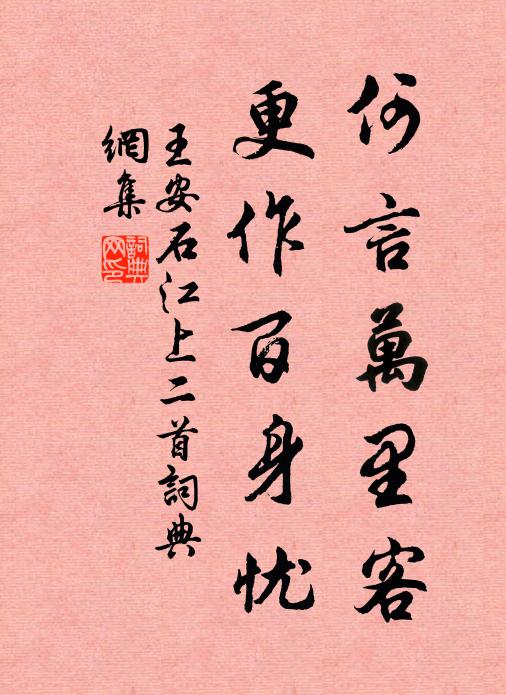 何言萬里客
更作百身忧
王安石江上二首詞典
網集
詞典网印